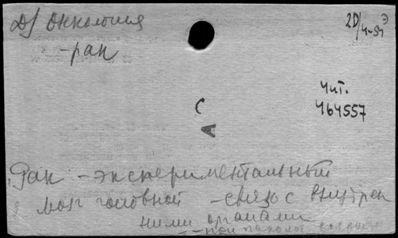 Д/ Онкология
-рак
2D/4-54
Э
Чит.
464557
С
А
Рак - экспериментальный
мозг головной - связь с внутрен
ними органами
- - при